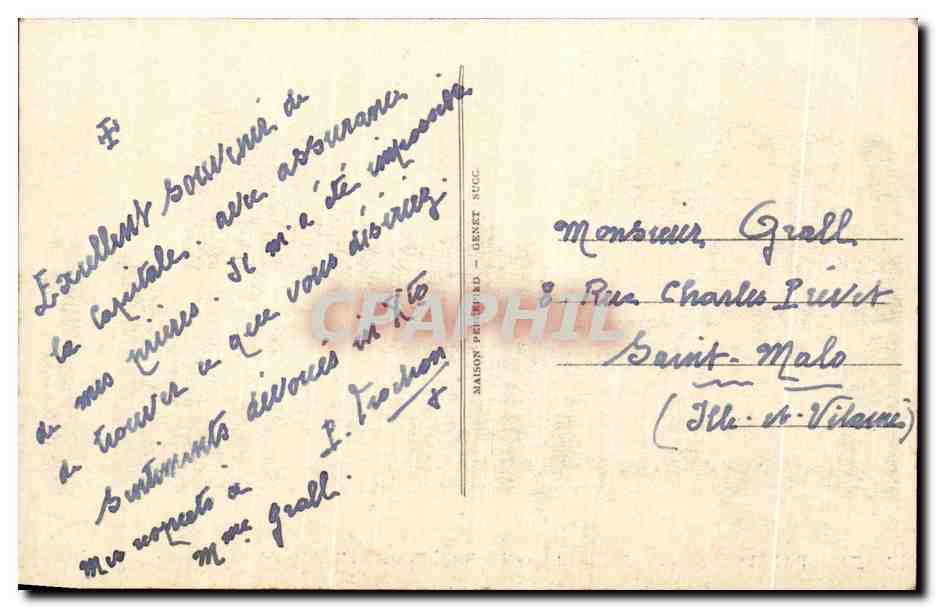 Excellent souvenir de
la Capitale. avec assurance
de mes prières. Il m'a été impossible
de trouver ce que vous désiriez.
Sentiments dévoués in Xto
P. Trochon
Mes respects à
Mme Grall.
MAISON - GENET SUCC.
Monsieur Grall
8 Rue Charles Prévet
Saint-Malo
(Ille-et-Vilaine)
CPAPHIL